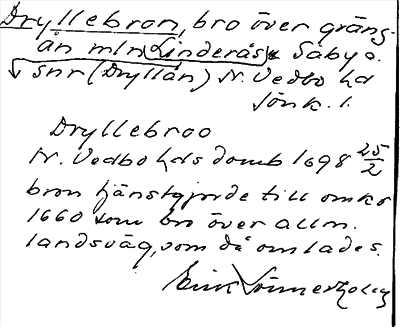 Dryllebron, bro över gräns-
ån mln Linderås & Säby o.
snr (Dryllån) N. Vedbo hd
Jönk. l.
Dryllebroo
N. Vedbo hds domb 1698 25/2
bron tjänstgjorde till omkr
1660 som bro över allm.
landsväg, som då omlades.
Erik Lönnerholm